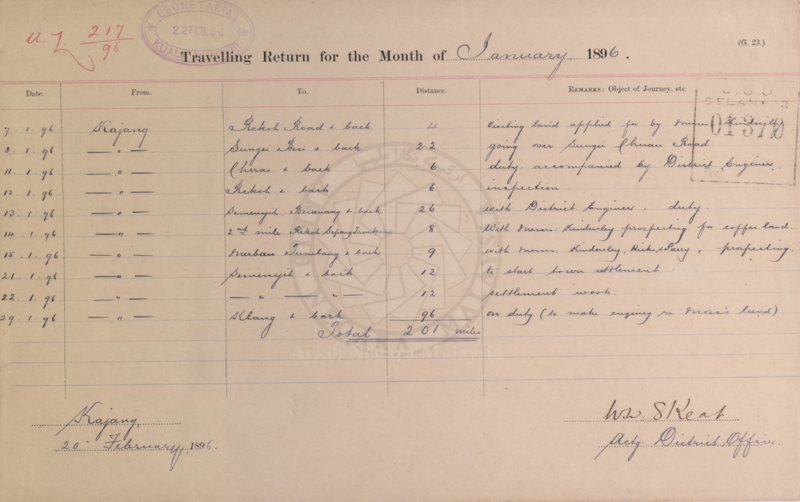 U. J. 217/96
SECRETARIAT
22 FEB 96
KUALA
(G. 23.)
Travelling Return for the Month of January 1896.
Date. From. To. Distance. REMARKS: Object of Journey, etc.
SELANGOR
7. 1. 96 Kajang Rekoh Road & back 4 Visiting land applied for by Kindersley
2. 1. 96 — " — Sungei & back 22 going over Sungei Road
11. 1. 96 — " — Cheras & back 6 duty accompanied by District Engineer
12. 1. 96 — " — Rekoh & back 6 inspection
13. 1. 96 — " — Semenyih, & back 26 with District Engineer. duty.
14. 1. 96 — " — 2nd mile Rekoh Sepang 8 With Messrs. Kindersley prospecting for coffee land
15. 1. 96 — " — Merbau & back 9 with Messrs. Kindersley, Hicks, & Parry, prospecting.
21. 1. 96 — " — Semenyih & back 12 to start town settlement
22. 1. 96 — " — — " — " — 12 settlement work
29. 1. 96 — " — Klang & back 96 on duty (to make enquiry re land)
Total 201 miles
Kajang,
20 February, 1896.
W. Skeat
Actg District Officer